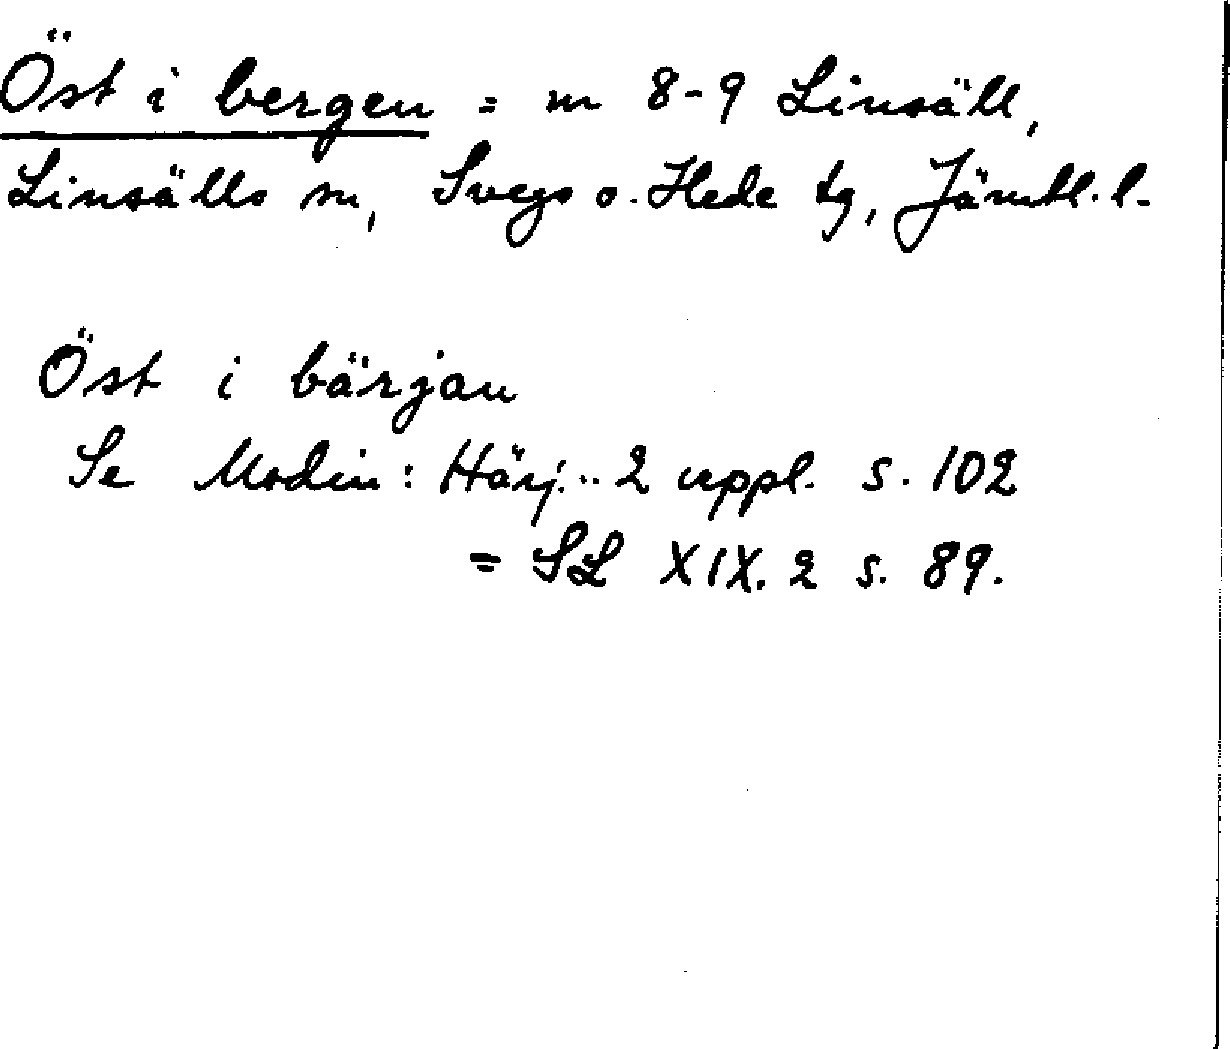 Öst i bergen = nr 8-9 Linsäll,
Linsälls sn, Svegs o. Hede tg, Jämtl. l.
Öst i bärjan
Se Modin: Härj... 2 uppl. s. 102
= SL XIX. 2 s. 89.